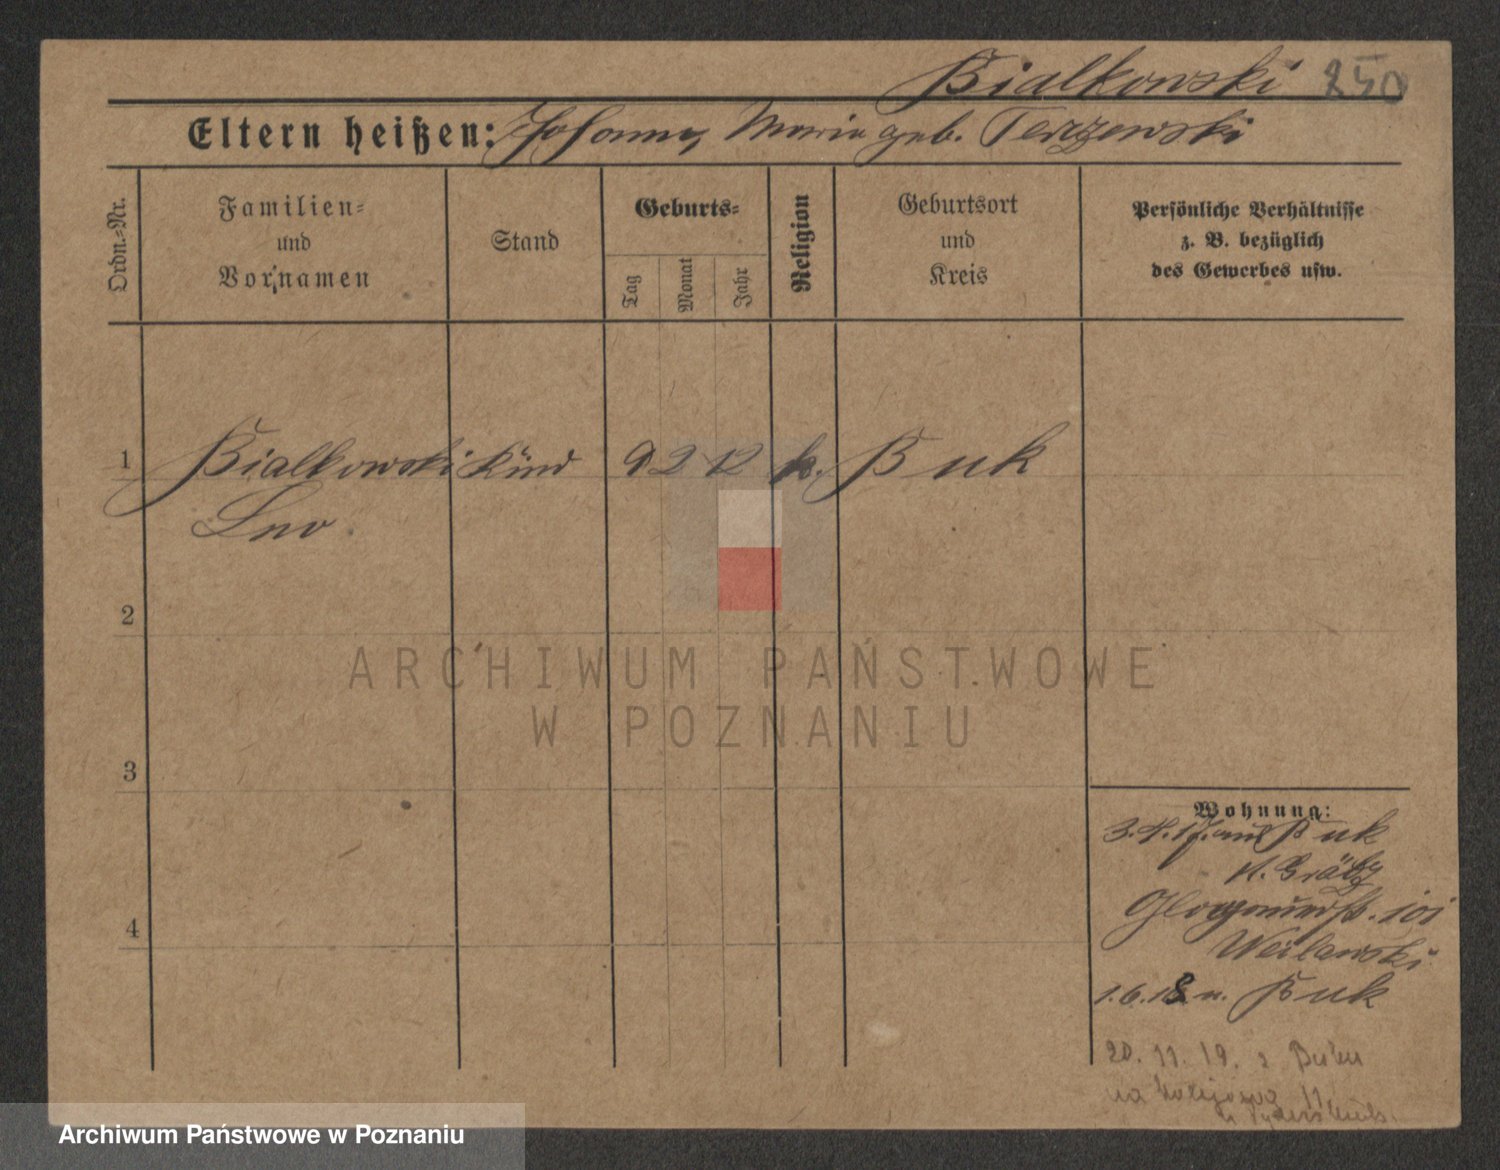 Bialkowski 250
Eltern heißen: Johann, Maria geb. Terzewski
Ordn.-Nr.
Familien-
und
Vornamen
Stand
Geburts-
Tag
Monat
Jahr
Religion
Geburtsort
und
Kreis
Persönliche Verhältnisse
z. B. bezüglich
des Gewerbes usw.
1 Bialkowski Kind 9 2 12 k. Buk
Leo.
2
ARCHIWUM PAŃSTWOWE
W POZNANIU
3
Wohnung:
3.4.17. aus Buk
K. Grätz
Glogauerstr. 101
4
1.6.18 n. Buk
20. 11. 19. z Buku
na 11
Archiwum Państwowe w Poznaniu